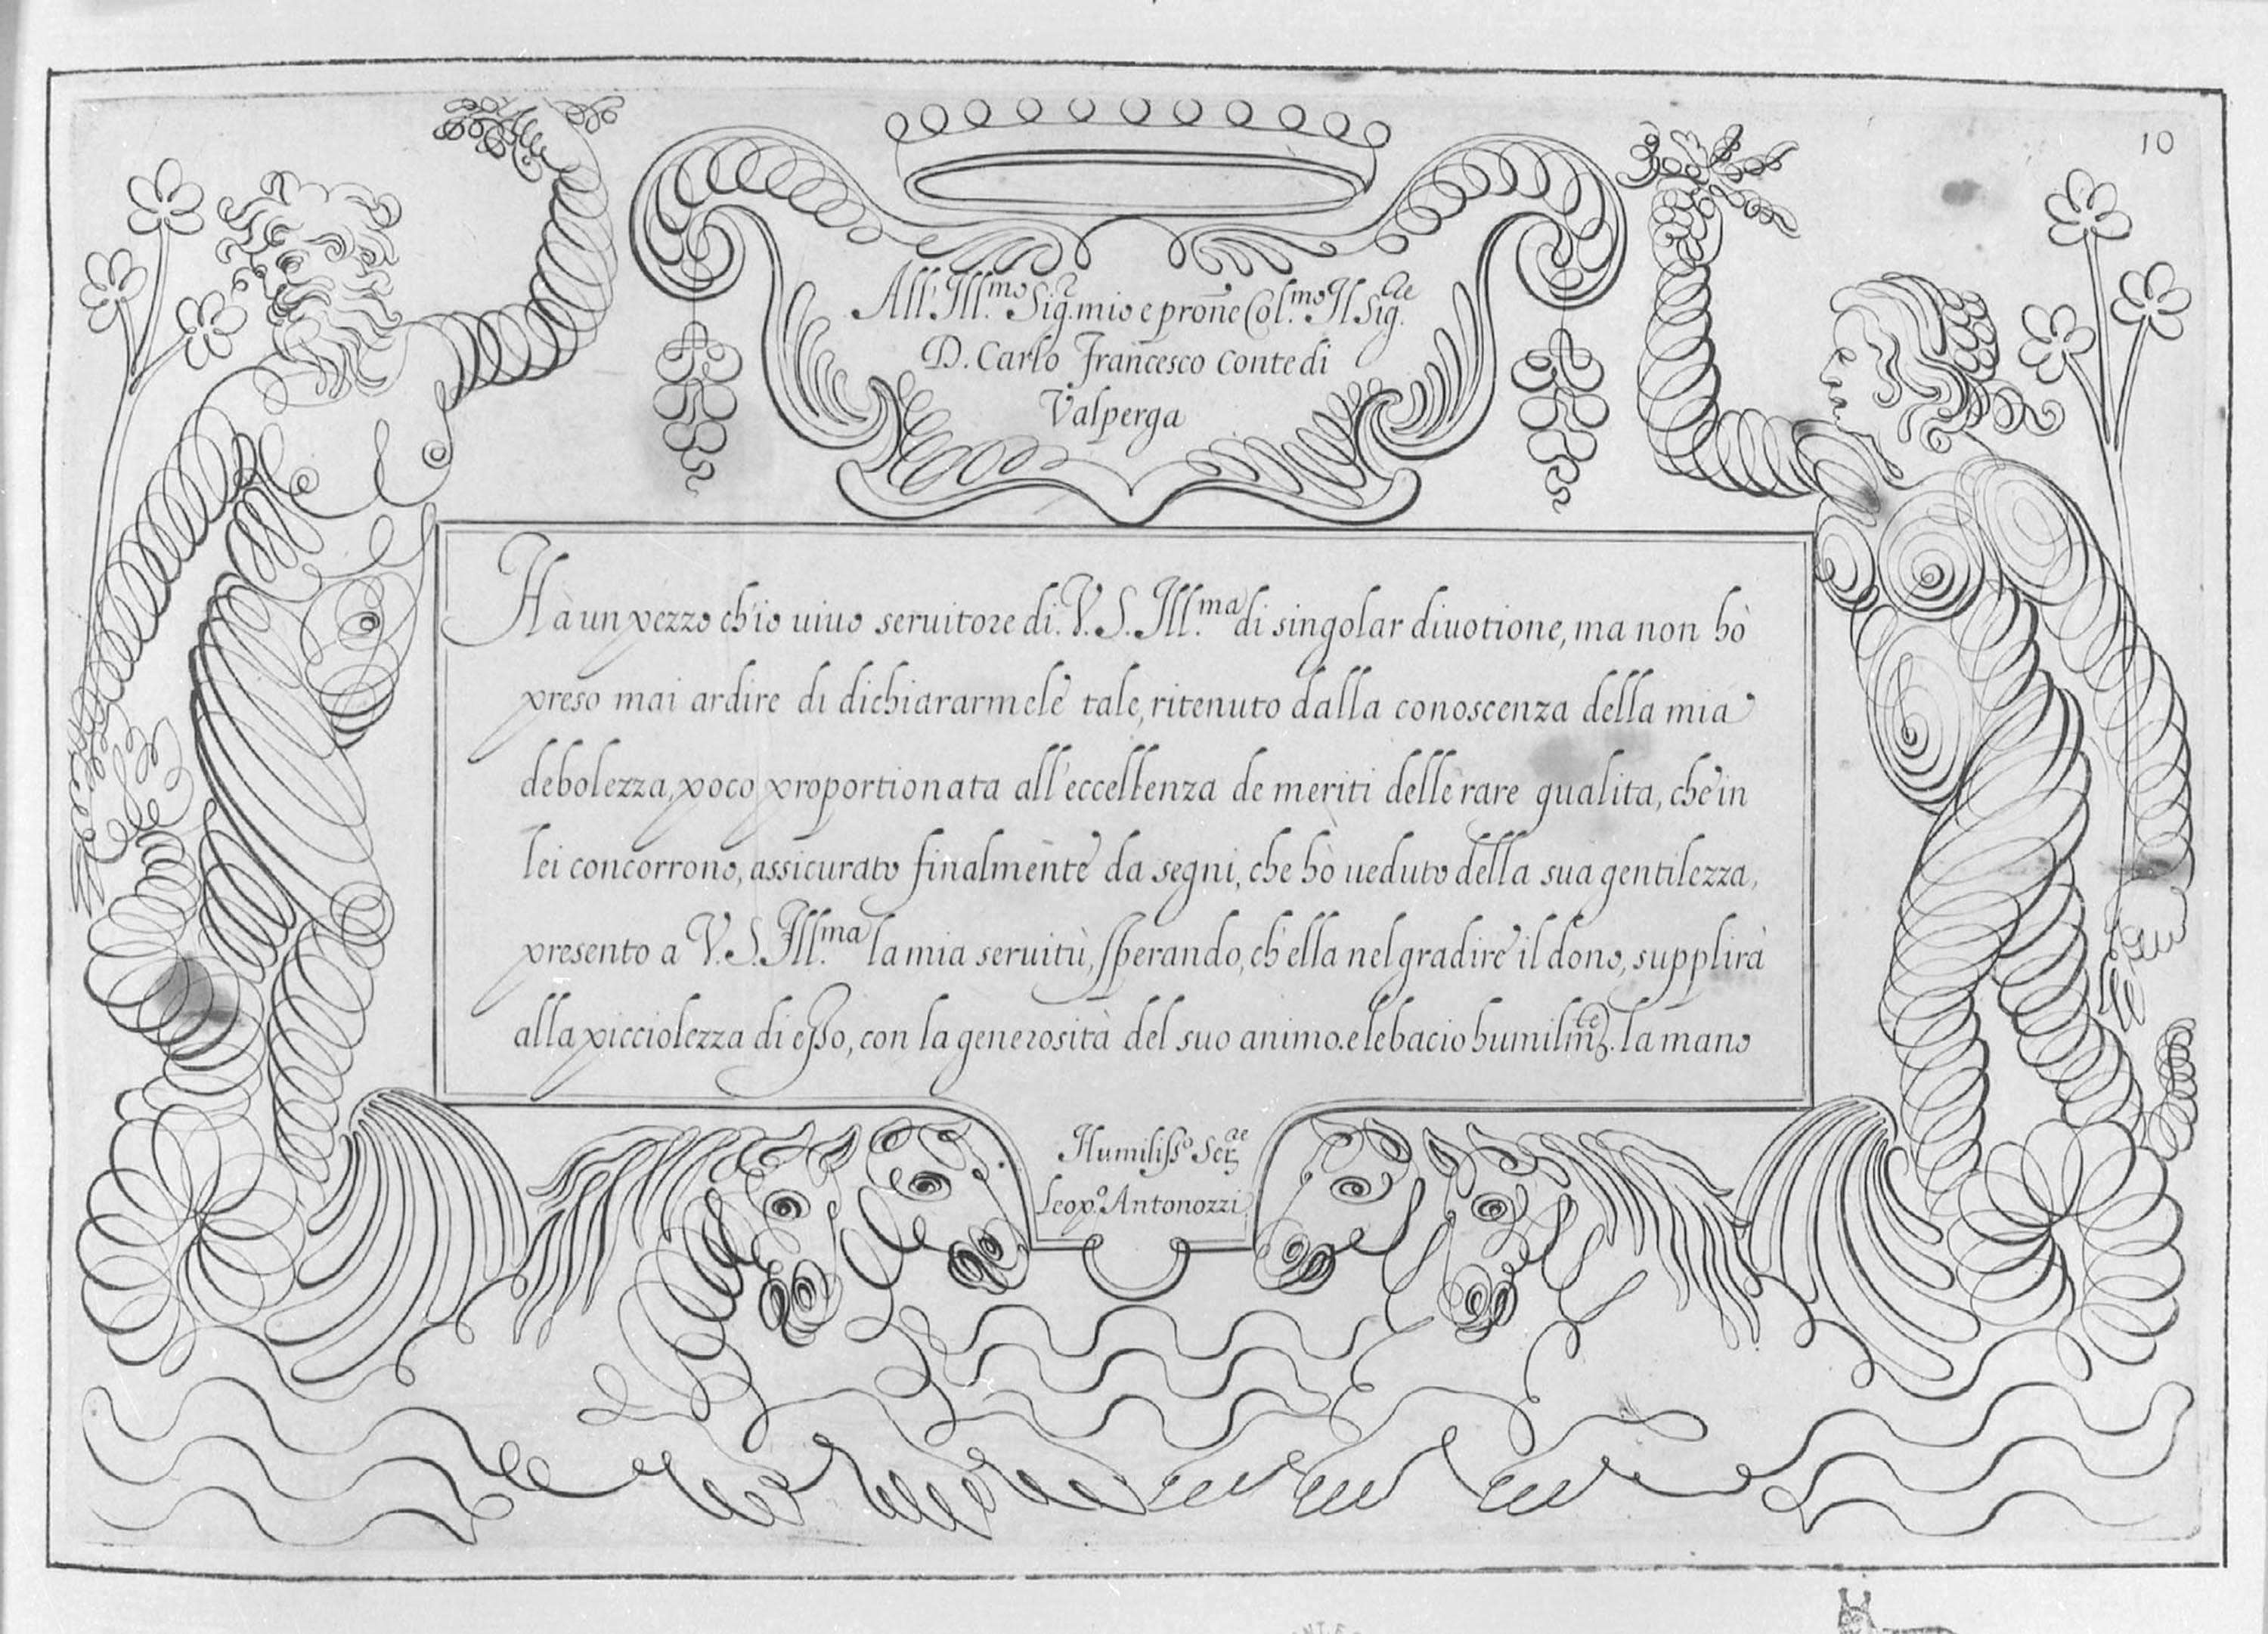 10
All' Ill.mo Sig.r mio e pron̄e Col.mo Il Sig.re
D. Carlo Francesco Conte di
Valperga
Hà un pezzo ch'io uiuo seruitore di V. S. Ill.ma di singolar diuotione, ma non hò
preso mai ardire di dichiararmele tale, ritenuto dalla conoscenza della mia
debolezza, poco proportionata all'eccellenza de meriti delle rare qualita, che in
lei concorrono, assicurato finalmente da segni, che hò ueduto della sua gentilezza,
presento a V. S. Ill.ma la mia seruitù, sperando, ch'ella nel gradire il dono, supplirà
alla picciolezza di esso, con la generosità del suo animo. e le bacio humilm.te la mano
Humiliss.o Ser.re
Leop.o Antonozzi